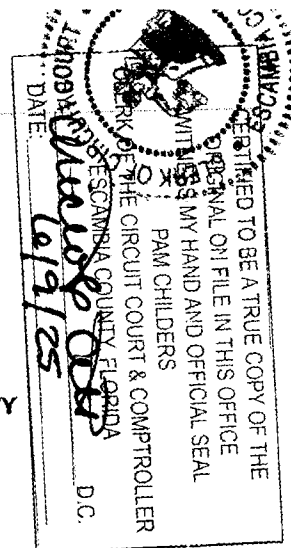 CERTIFIED TO BE A TRUE COPY OF THE
ORIGINAL ON FILE IN THIS OFFICE
WITNESS MY HAND AND OFFICIAL SEAL
PAM CHILDERS
CLERK OF THE CIRCUIT COURT & COMPTROLLER
ESCAMBIA COUNTY, FLORIDA
D.C.
DATE: 6/9/25